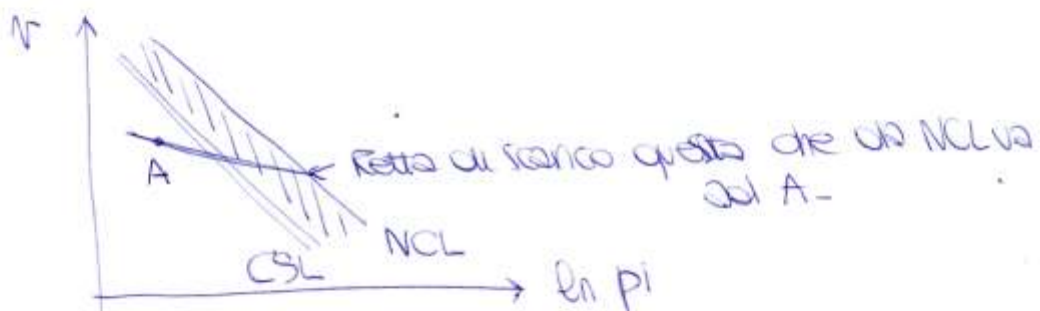 v
A
Retta di scarico questa che da NCL va
ad A-
NCL
CSL
ln pi